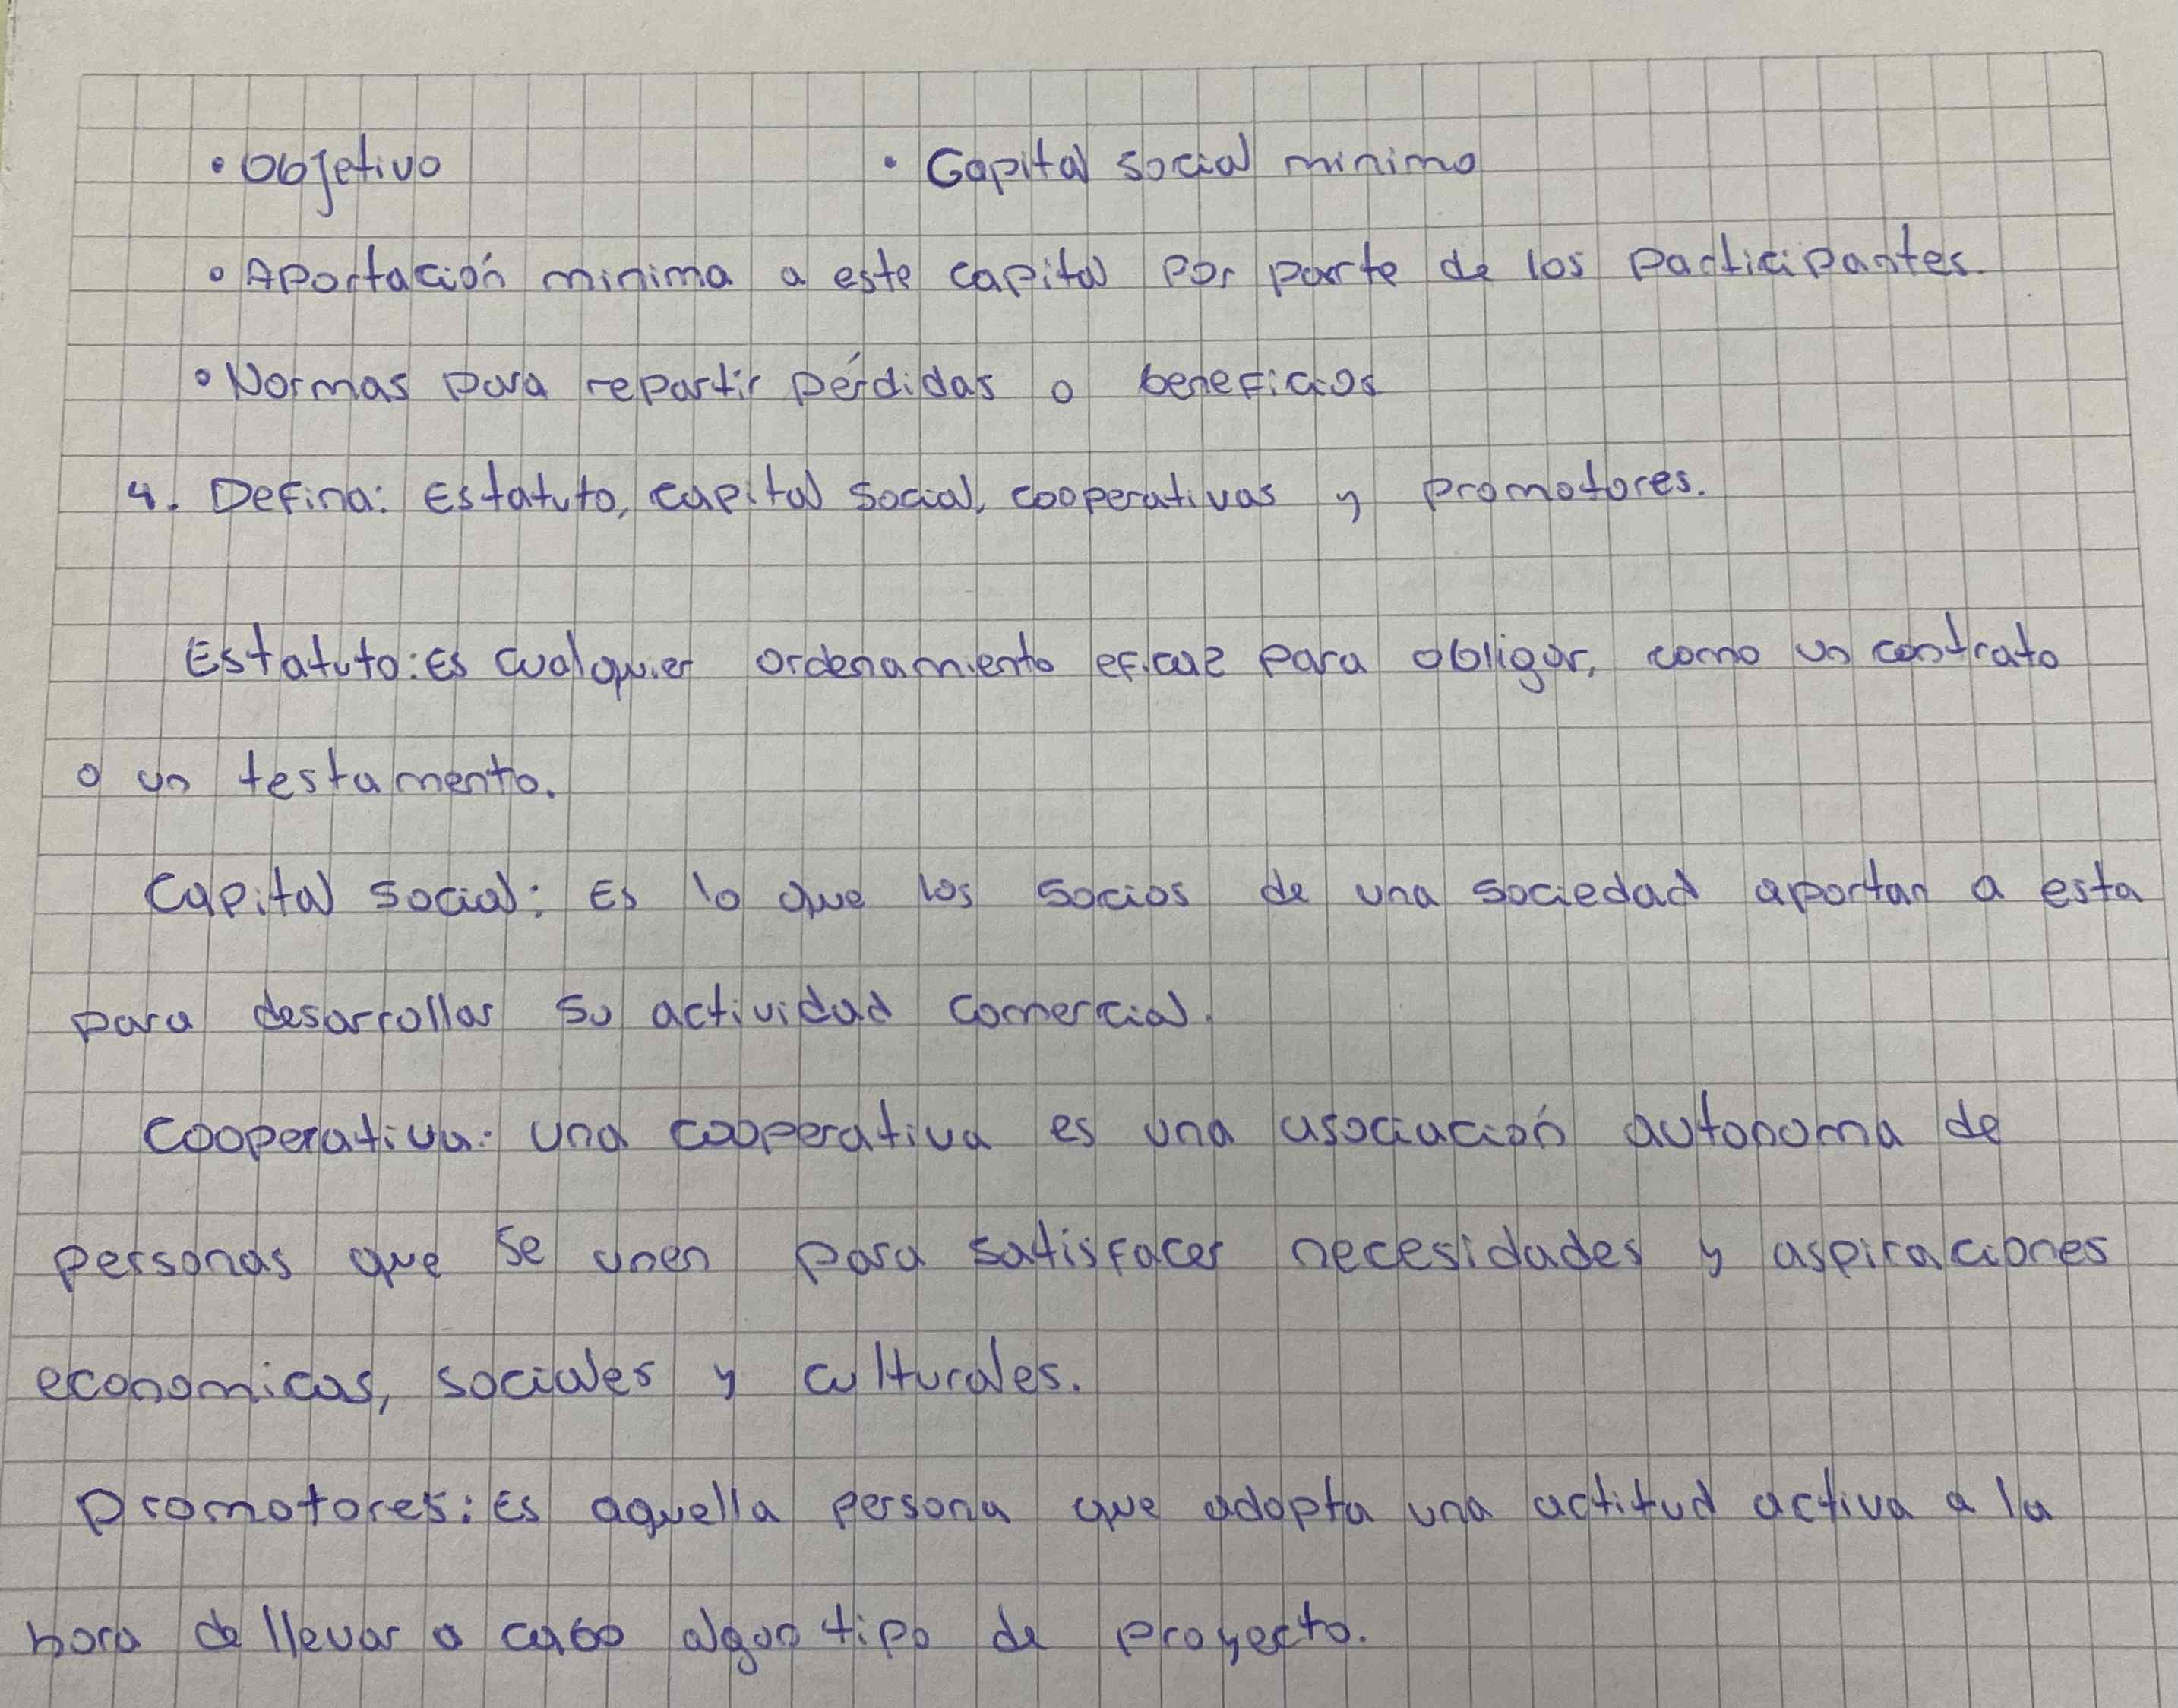 • Objetivo • Capital social minimo
• Aportación minima a este capital por parte de los participantes.
• Normas para repartir pérdidas o beneficios
4. Defina: Estatuto, capital social, cooperativas y promotores.
Estatuto: Es cualquier ordenamiento eficaz para obligar, como un contrato
o un testamento.
Capital social: Es lo que los socios de una sociedad aportan a esta
para desarrollar su actividad comercial.
Cooperativa: una cooperativa es una asociación autonoma de
personas que se unen para satisfacer necesidades y aspiraciones
economicas, sociales y culturales.
Promotores: Es aquella persona que adopta una actitud activa a la
hora de llevar a cabo algun tipo de proyecto.